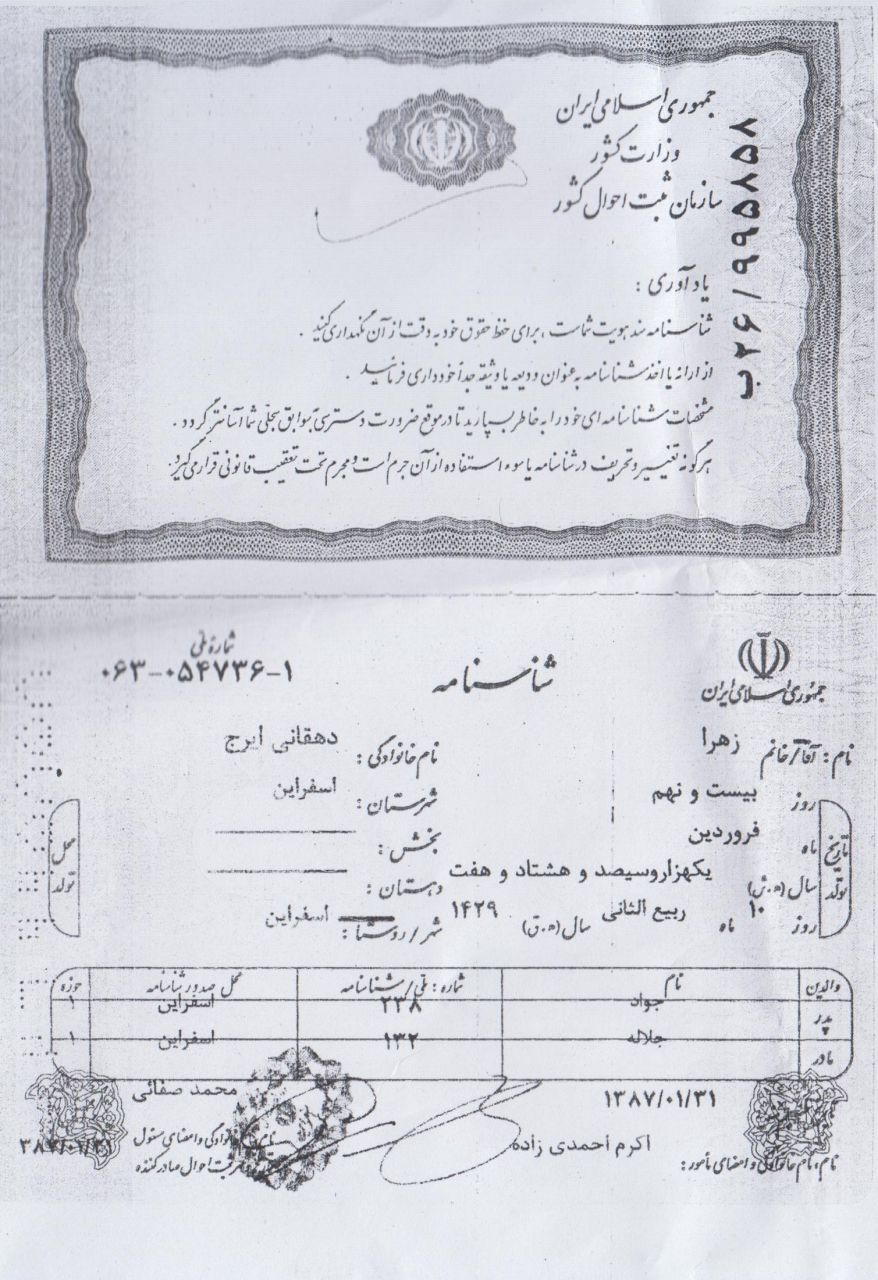 جمهوری اسلامی ایران
وزارت کشور
سازمان ثبت احوال کشور
ب۲۶/۹۹۵۸۵۸
یادآوری :
شناسنامه سند هویت شماست ، برای حفظ حقوق خود به دقت از آن نگهداری کنید .
از ارائه یا اخذ شناسنامه به عنوان ودیعه یا وثیقه جداً خودداری فرمائید .
مشخصات شناسنامه ای خود را به خاطر بسپارید تا در موقع ضرورت دسترسی به سوابق سجلی شما آسانتر گردد .
هرگونه تغییر و تحریف در شناسنامه یا سوء استفاده از آن جرم است و مجرم تحت تعقیب قانونی قرار می‌گیرد.
جمهوری اسلامی ایران
شناسنامه
شمارهٔ ملی
۰۶۳-۰۵۴۷۳۶-۱
نام : آقا/خانم زهرا نام خانوادگی : دهقانی ایرج
تاریخ تولد
روز بیست و نهم
ماه فروردین
سال (ه.ش) یکهزاروسیصد و هشتاد و هفت
روز ۱۰ ماه ربیع الثانی سال (ه.ق) ۱۴۲۹
محل تولد
شهرستان : اسفراین
بخش :
دهستان :
شهر/روستا : اسفراین
والدین نام شماره : ملی/شناسنامه محل صدور شناسنامه حوزه
پدر جواد ۲۳۸ اسفراین ۱
مادر جلاله ۱۳۲ اسفراین ۱
۱۳۸۷/۰۱/۳۱ محمد صفائی
اکرم احمدی زاده
نام، نام خانوادگی و امضای مأمور :
خانوادگی و امضای مسئول
ثبت احوال صادرکننده